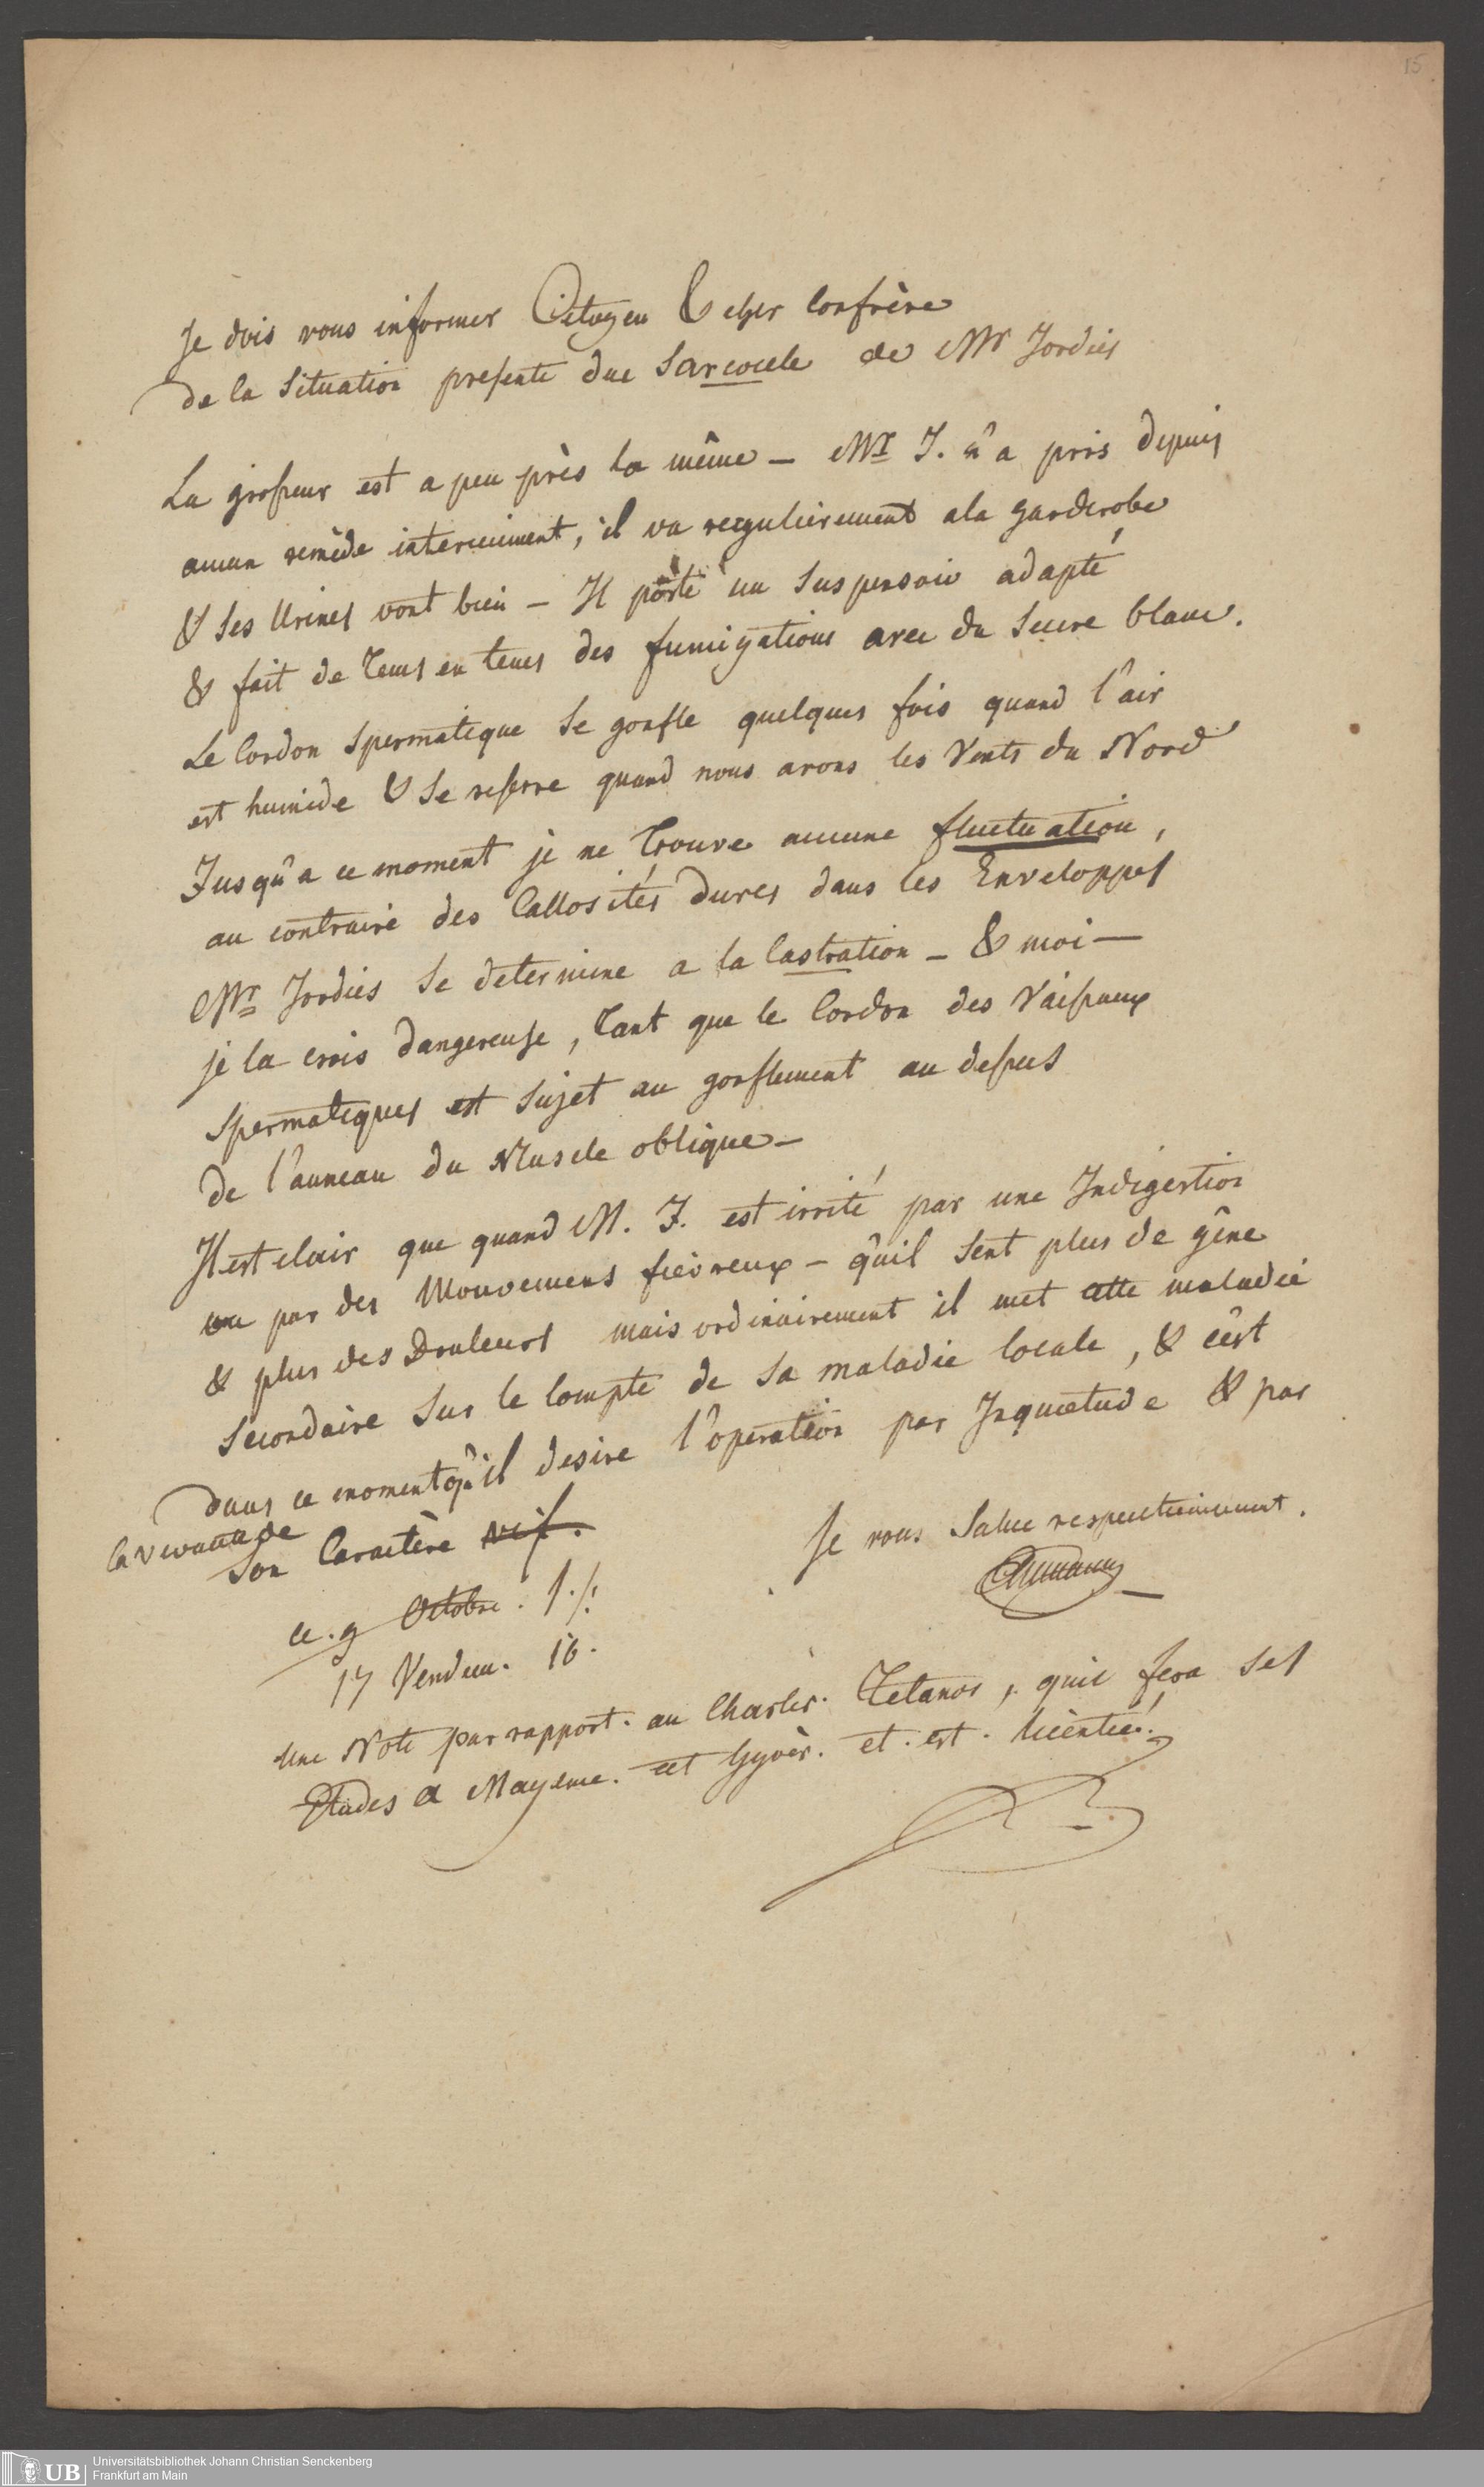 15
Je dois vous informer Citoyen & cher Confrère
de la Situation presente due Sarcocele de Mr Jordis
La grosseur est a peu près la même – Mr J. n'a pris depuis
aucun remède interieuiment, il va regulierement a la garderobe
& ses Urines vont bien – Il porte un Suspensoir adapté
& fait de tems en tems des fumigations avec du Sucre blanc.
Le Cordon Spermatique Se gonfle quelques fois quand l'air
est humide & Se resserre quand nous avons les Vents du Nord
Jusqu'a ce moment je ne Trouve aucune fluctuation,
au contraire des Callosités dures dans les Enveloppes
Mr Jordis Se determine a la Castration – & moi –
je la crois dangereuse, tant que le Cordon des Vaisseaux
Spermatiques est Sujet au gonflement au dessus
de l'anneau du Muscle oblique –
Il est clair que quand M. J. est irrité par une Indigestion
ou par des Mouvemens fièvreux – qu'il Sent plus de gêne
& plus des Douleurs mais ordinairement il met cette maladie
Secondaire Sur le Compte de Sa maladie locale, & c'est
dans ce moment qu'il desire l'operation par Inquietude & par
la vivacité de
Son Caractère vif.
Je vous Salue respectueusement.
ce. 9 Octobre.
17 Vendem.
Une Note par rapport. au Charles. Tetanos, qui fera Ses
Etudes a Mayence. et et. est. licentié.